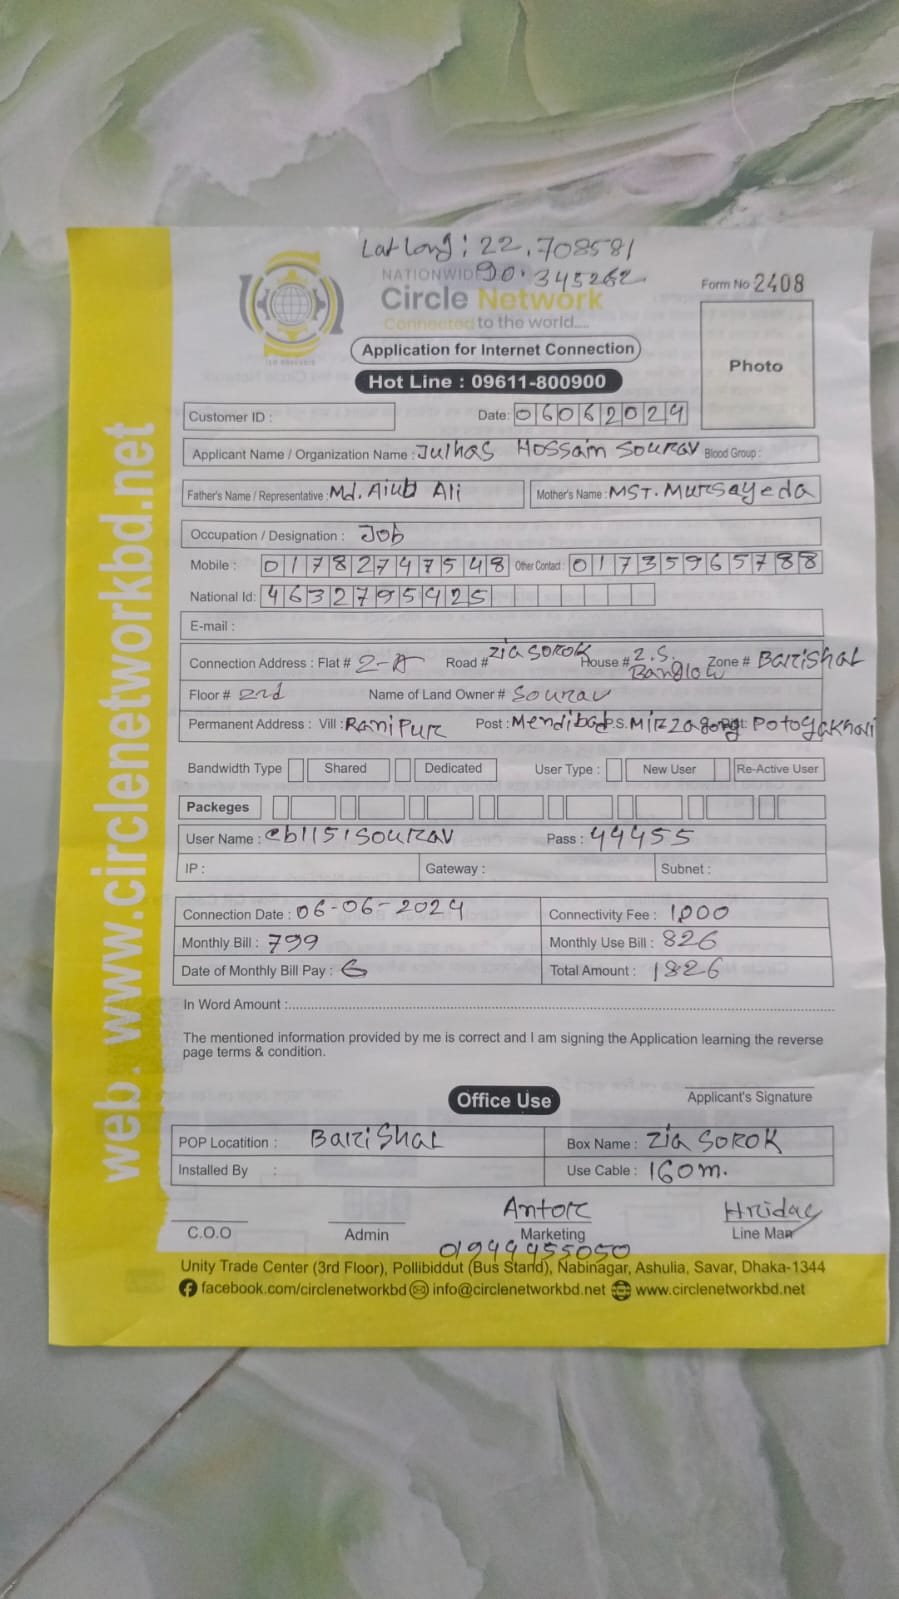 Lat long : 22.708581
90.345262
NATIONWIDE
Circle Network
Connected to the world.....
Form No 2408
Photo
Application for Internet Connection
Hot Line : 09611-800900
Customer ID :
Date: 06062024
Applicant Name / Organization Name : Julhas Hossain Sourav Blood Group :
Father's Name / Representative : Md. Aiub Ali Mother's Name : MST. Mursayeda
Occupation / Designation : Job
Mobile : 01782747548 Other Contact : 01735965788
National Id: 4632795425
E-mail :
Connection Address : Flat # 2-A Road # Zia Sorok House # 2.S. Banglow Zone # Barishal
Floor # 2nd Name of Land Owner # Sourav
Permanent Address : Vill : Ranipur Post : Mendibad P.S. Mirzagong Dist: Potoyakhari
Bandwidth Type Shared Dedicated User Type : New User Re-Active User
Packeges
User Name : cb1151sourav Pass : 44455
IP : Gateway : Subnet :
Connection Date : 06-06-2024 Connectivity Fee : 1000
Monthly Bill : 799 Monthly Use Bill : 826
Date of Monthly Bill Pay : 6 Total Amount : 1826
In Word Amount :
The mentioned information provided by me is correct and I am signing the Application learning the reverse
page terms & condition.
Office Use
Applicant's Signature
POP Locatition : Barishal Box Name : Zia Sorok
Installed By : Use Cable : 160m.
Antor Hridoy
C.O.O Admin Marketing Line Man
01944455050
Unity Trade Center (3rd Floor), Pollibiddut (Bus Stand), Nabinagar, Ashulia, Savar, Dhaka-1344
facebook.com/circlenetworkbd info@circlenetworkbd.net www.circlenetworkbd.net
web : www.circlenetworkbd.net